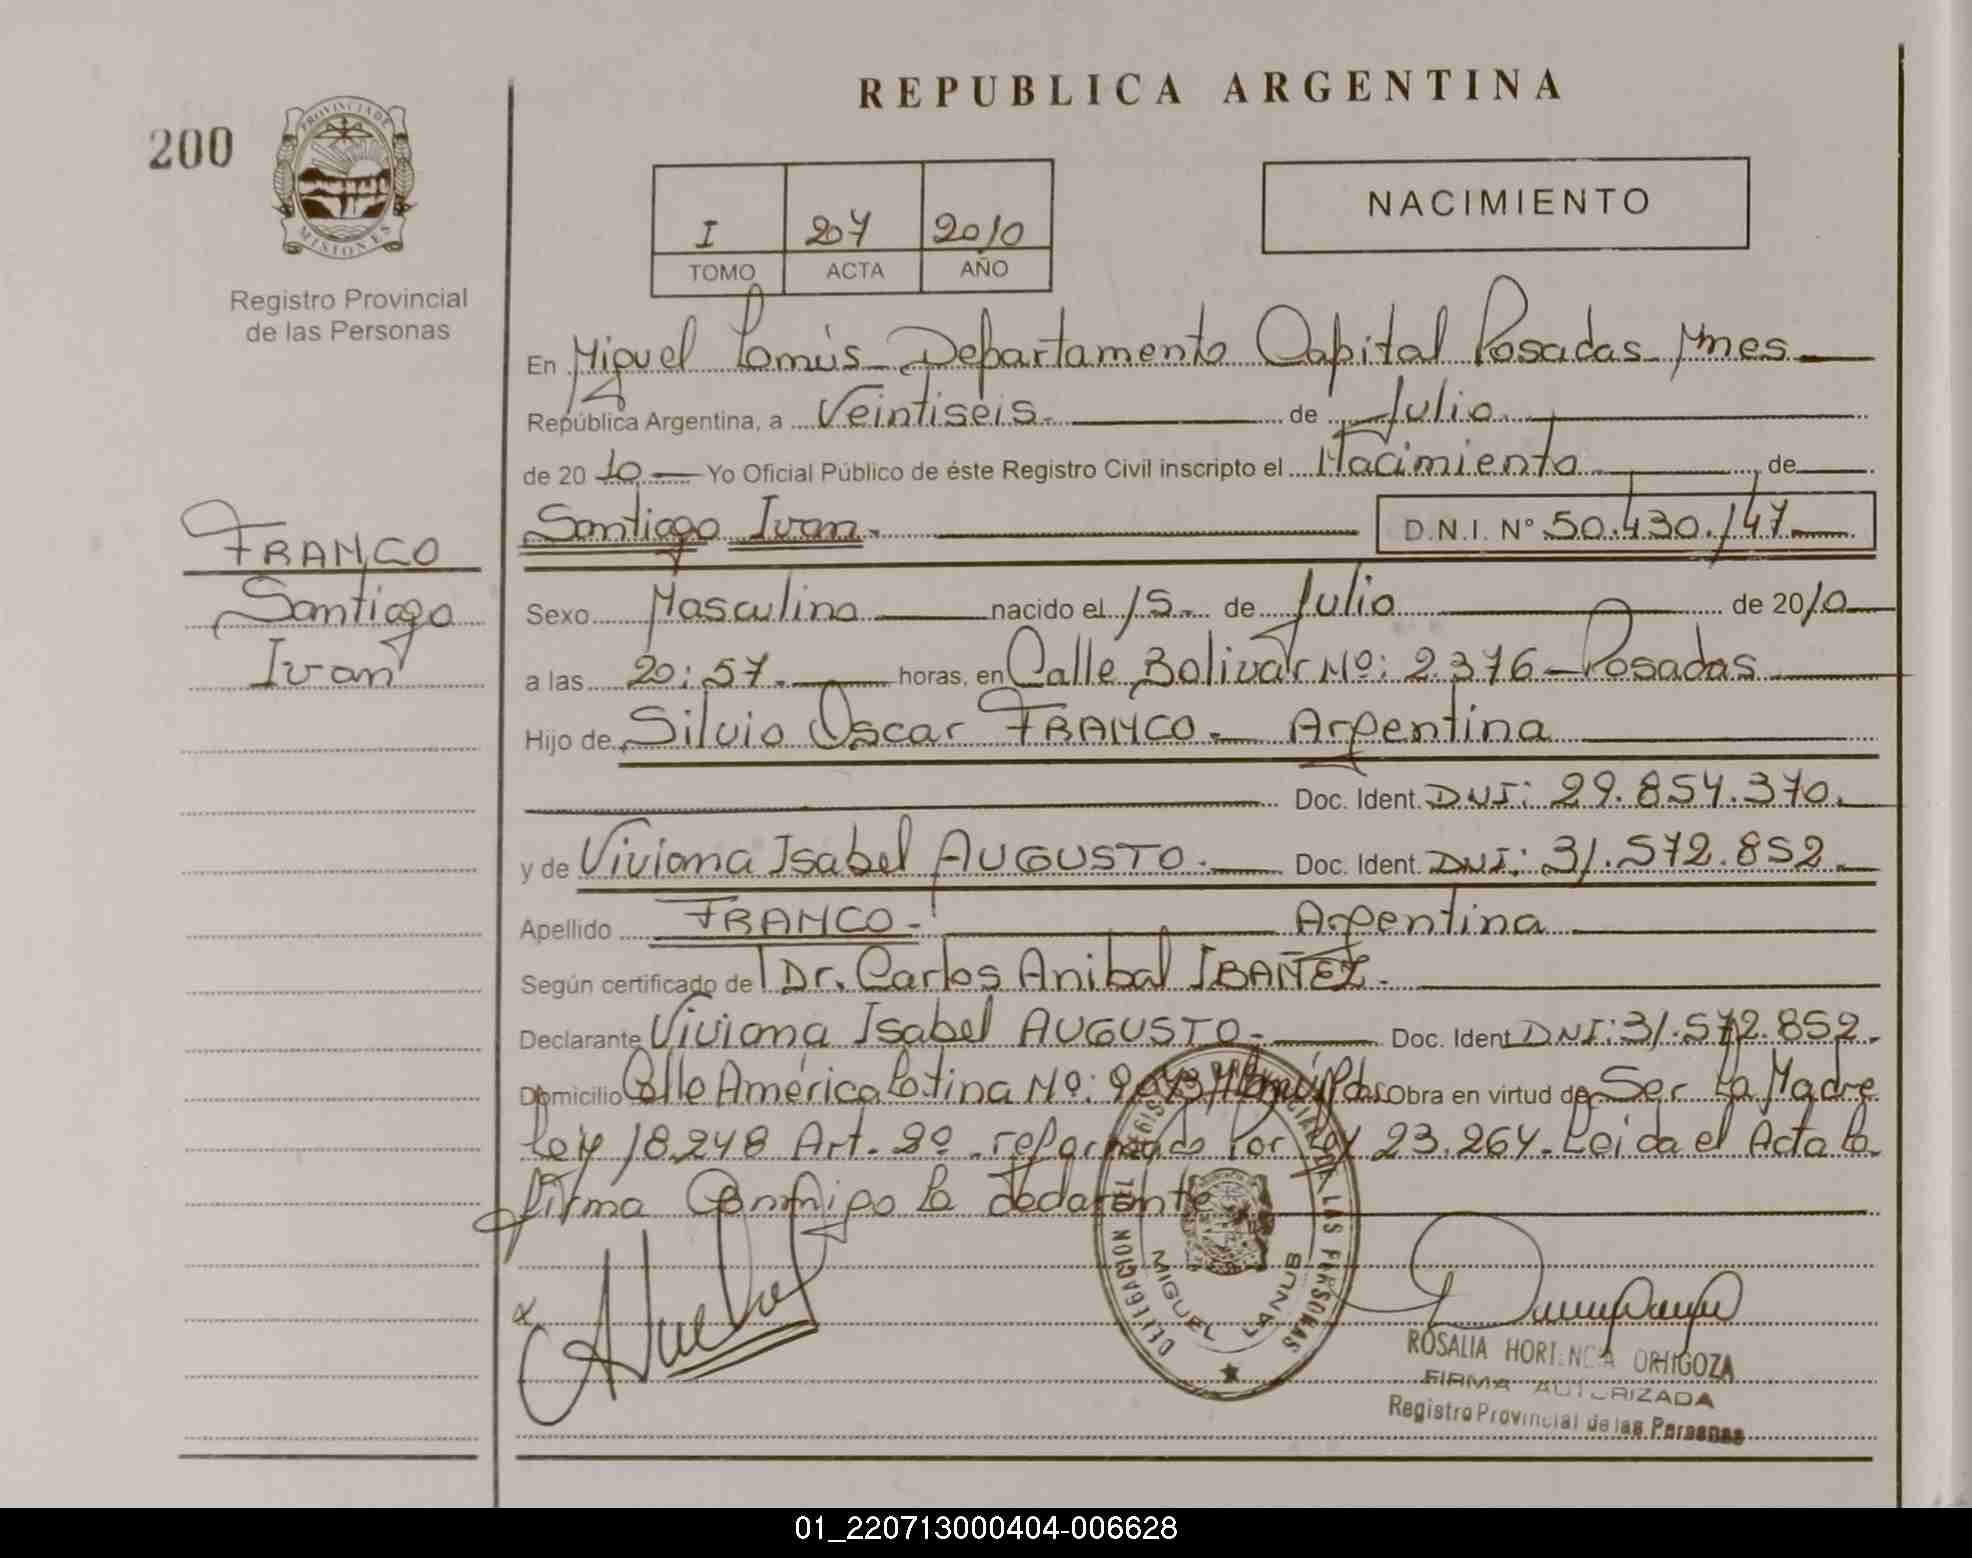 REPUBLICA ARGENTINA
200
PROVINCIA DE MISIONES
Registro Provincial
de las Personas
I 207 2010
TOMO ACTA AÑO
NACIMIENTO
FRANCO
Santiago
Ivan
En Miguel Lanús Departamento Capital Posadas Mnes
República Argentina, a Veintiseis de Julio
de 2010 Yo Oficial Público de éste Registro Civil inscripto el Nacimiento de
Santiago Ivan. D.N.I. Nº 50.430.147
Sexo Masculino nacido el 15 de Julio de 2010
a las 20:57. horas, en Calle Bolivar Nº: 2376 - Posadas
Hijo de Silvio Oscar FRANCO. Argentina
Doc. Ident. DNI: 29.854.370.
y de Viviana Isabel AUGUSTO. Doc. Ident. DNI: 31.572.852.
Apellido FRANCO. Argentina
Según certificado de Dr. Carlos Anibal IBAÑEZ.
Declarante Viviana Isabel AUGUSTO. Doc. Ident DNI: 31.572.852.
Domicilio Calle América Latina Nº: Obra en virtud de Ser la Madre
Ley 18.248 Art. 2º reformado Por Ley 23.264. Leida el Acta la
firma Conmigo la declarante
DELEGACION DEL REGISTRO PROVINCIAL DE LAS PERSONAS
MIGUEL LANUS
ROSALIA HORTENCIA ORTIGOZA
FIRMA AUTORIZADA
Registro Provincial de las Personas
01_220713000404-006628